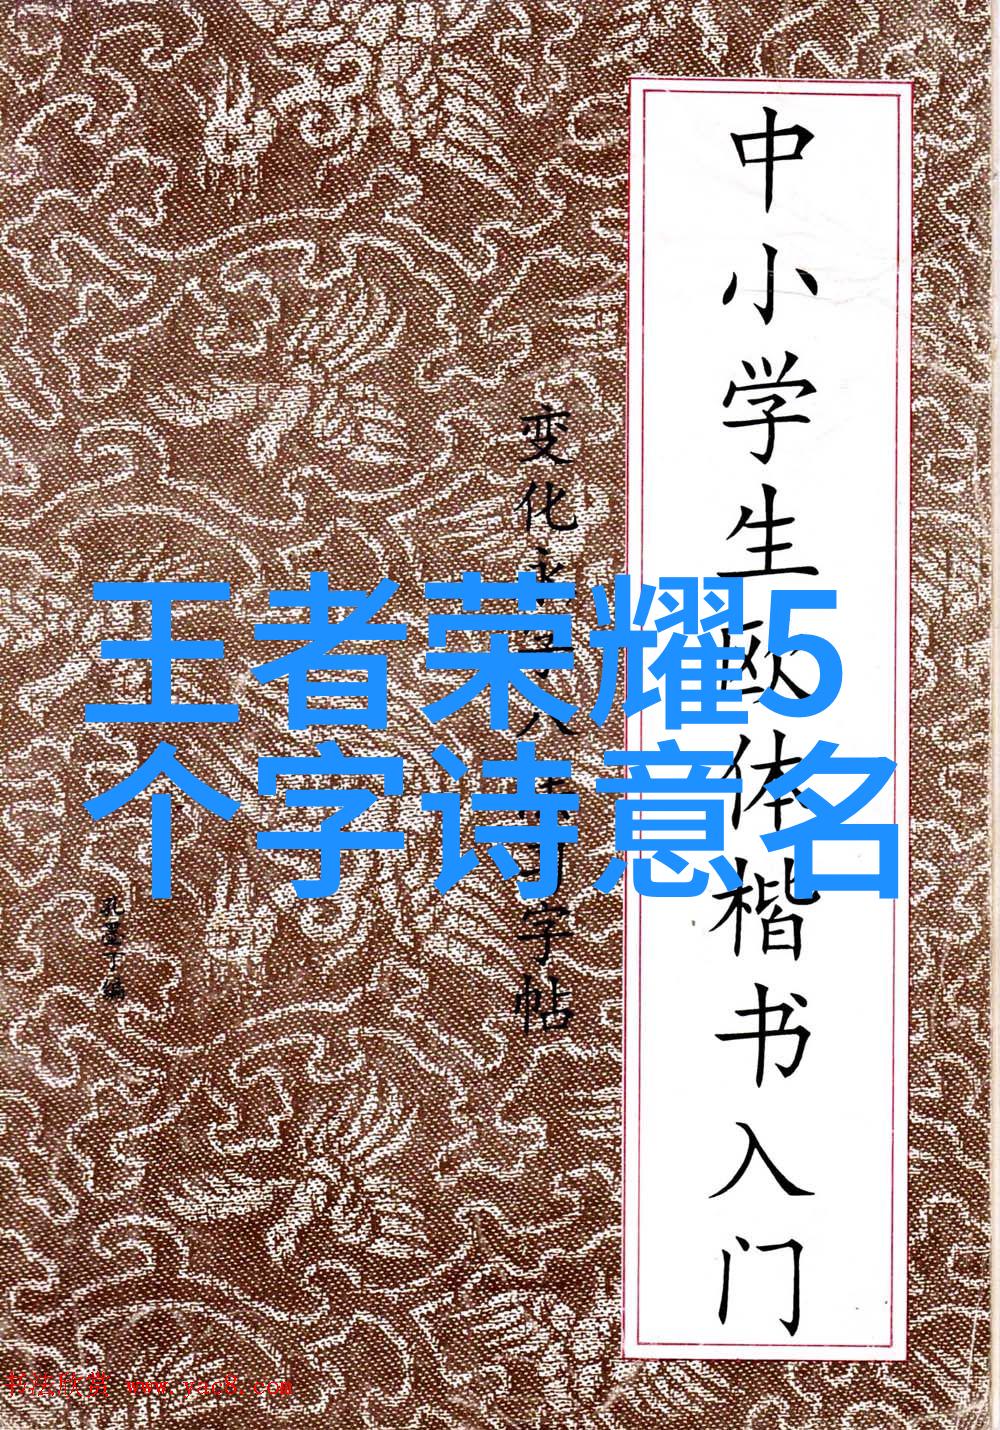 中小学生欧体楷书入门
变化永字八
字帖
孔墨丁编
王者荣耀5
个字诗意名
书法欣赏 www.yac8.com